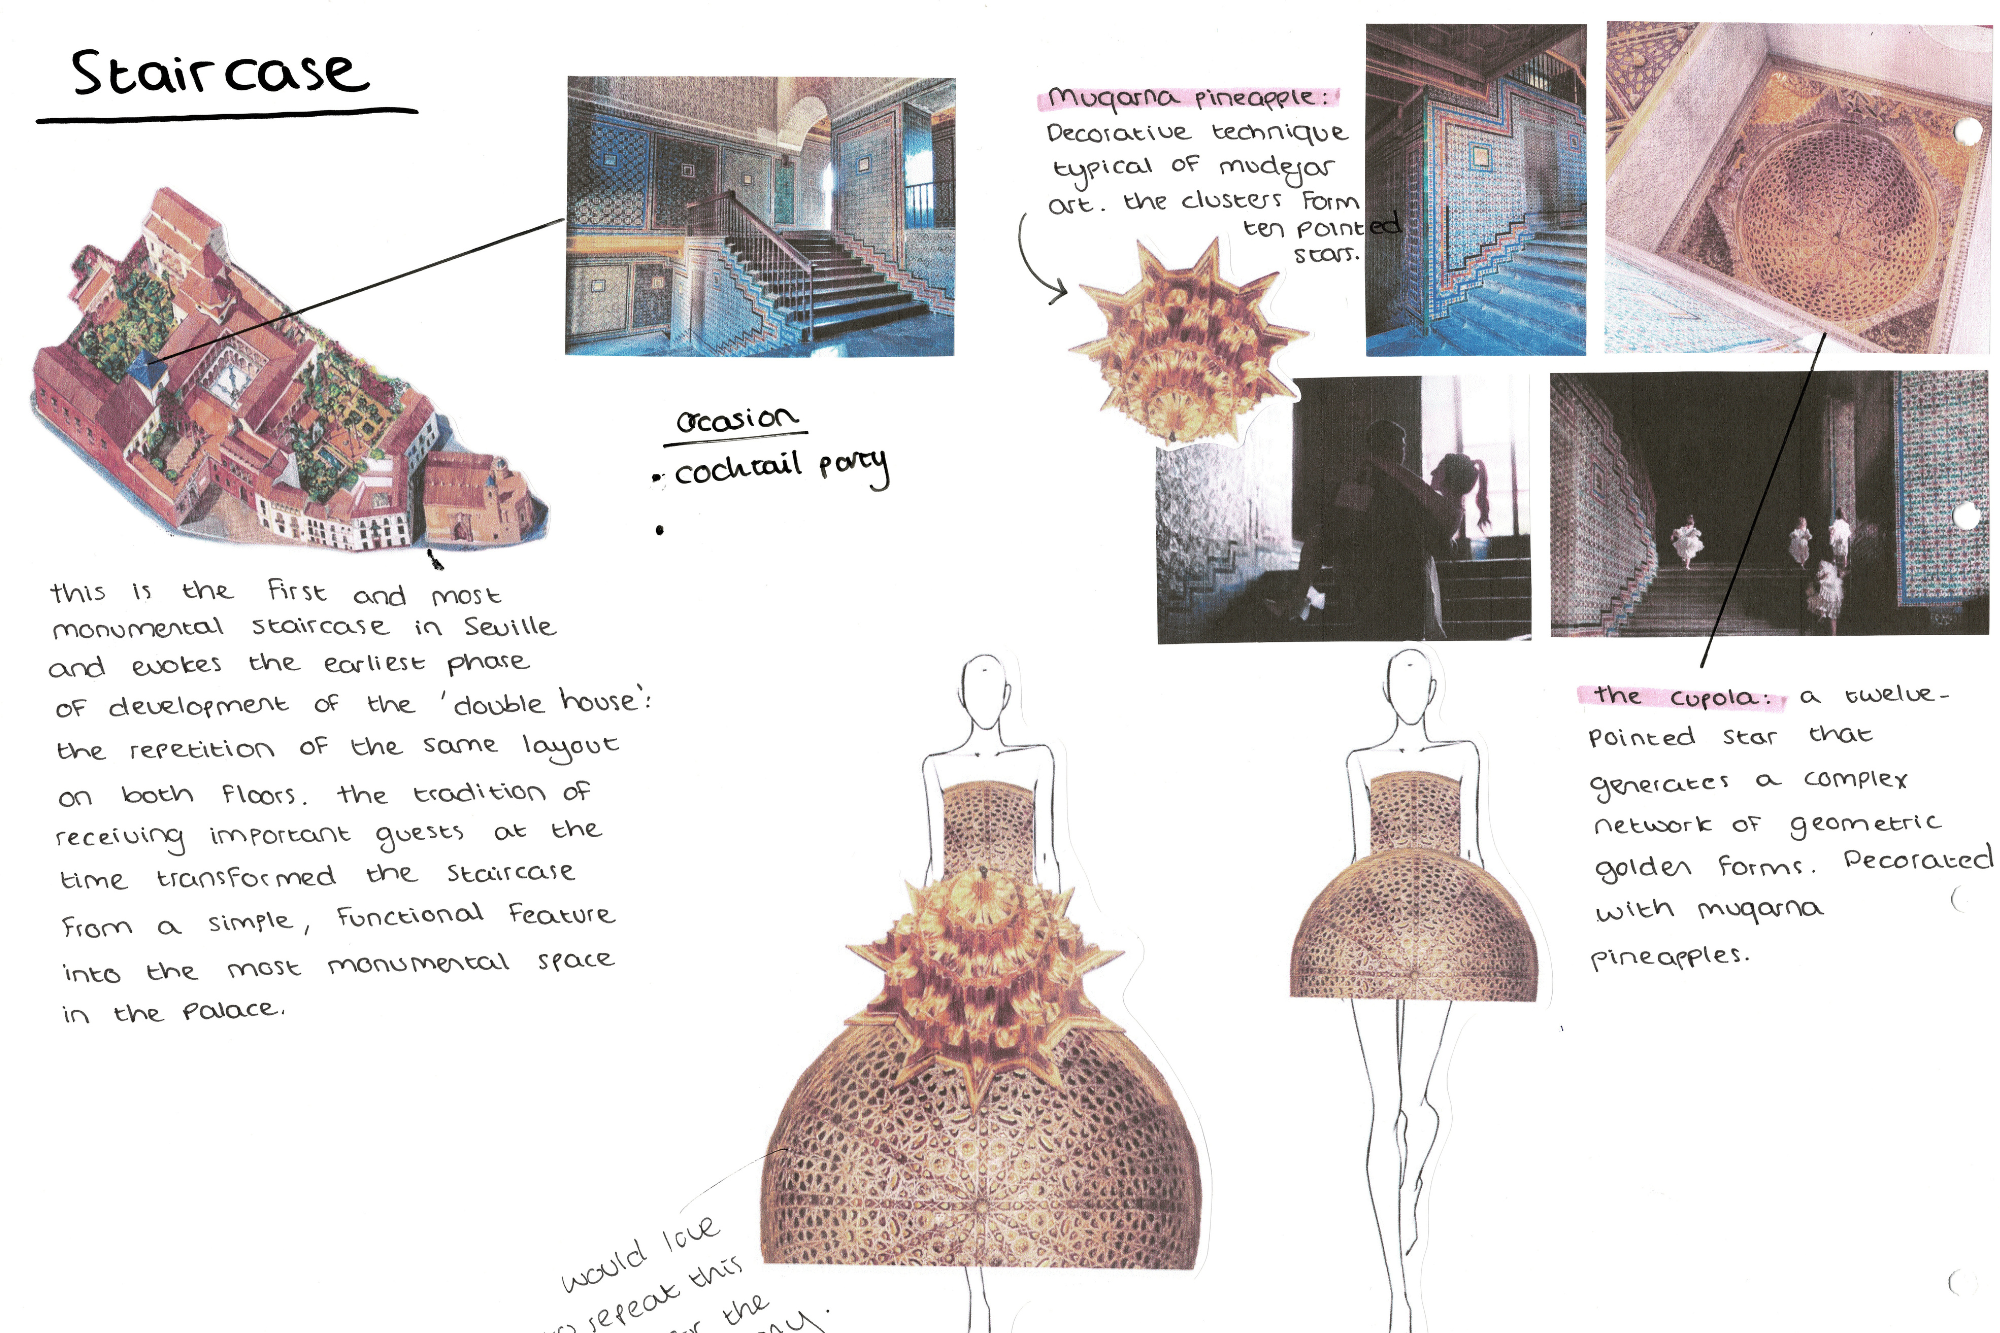 Staircase
this is the first and most
monumental staircase in Seville
and evokes the earliest phase
of development of the 'double house':
the repetition of the same layout
on both floors. the tradition of
receiving important guests at the
time transformed the staircase
from a simple, functional feature
into the most monumental space
in the Palace.
Occasion
• cocktail party
•
Muqarna pineapple:
Decorative technique
typical of mudejar
art. the clusters form
ten pointed
stars.
the cupola: a twelve-
pointed star that
generates a complex
network of geometric
golden forms. Decorated
with muqarna
pineapples.
would love
to repeat this
for the